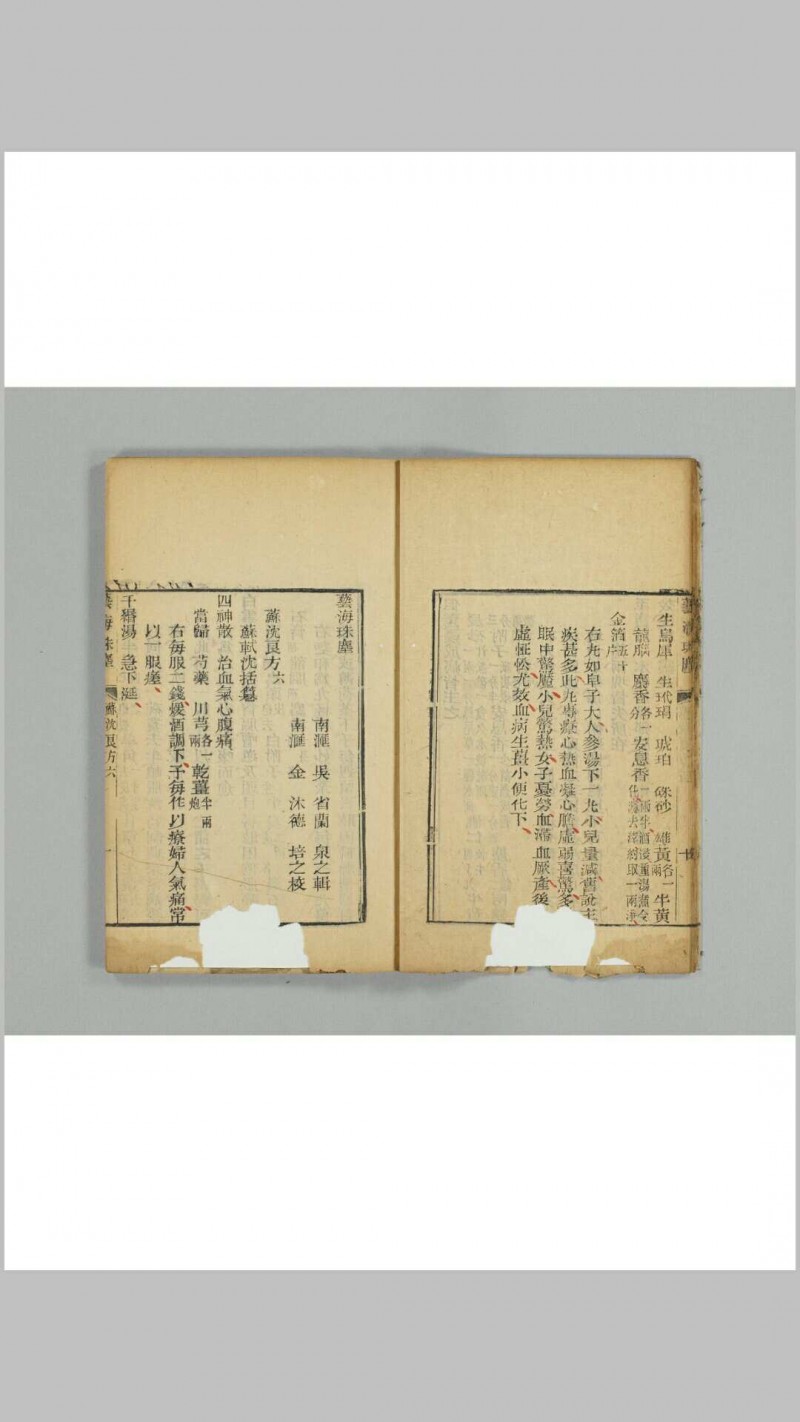 生烏犀 生玳瑁 琥珀 硃砂 雄黃各一兩 牛黃
龍腦 麝香各一分 安息香
金箔
右丸如皁子大人參湯下一丸小兒量減舊說主
疾甚多此丸專療心熱血凝心膽虛弱喜驚多
眠中驚魘小兒驚熱女子憂勞血滯血厥產後
虛怔忪尤效血病生薑小便化下
藝海珠塵
南滙 吳 省蘭 泉之輯
南滙 金 沐德 培之校
蘇沈良方六
蘇軾沈括
四神散 治血氣心腹痛
當歸 芍藥 川芎各一兩 乾薑半兩炮
右每服二錢煖酒調下予每作以療婦人氣痛常
以一服瘥
千緡湯 急下涎
藝海珠塵 蘇沈良方六 一